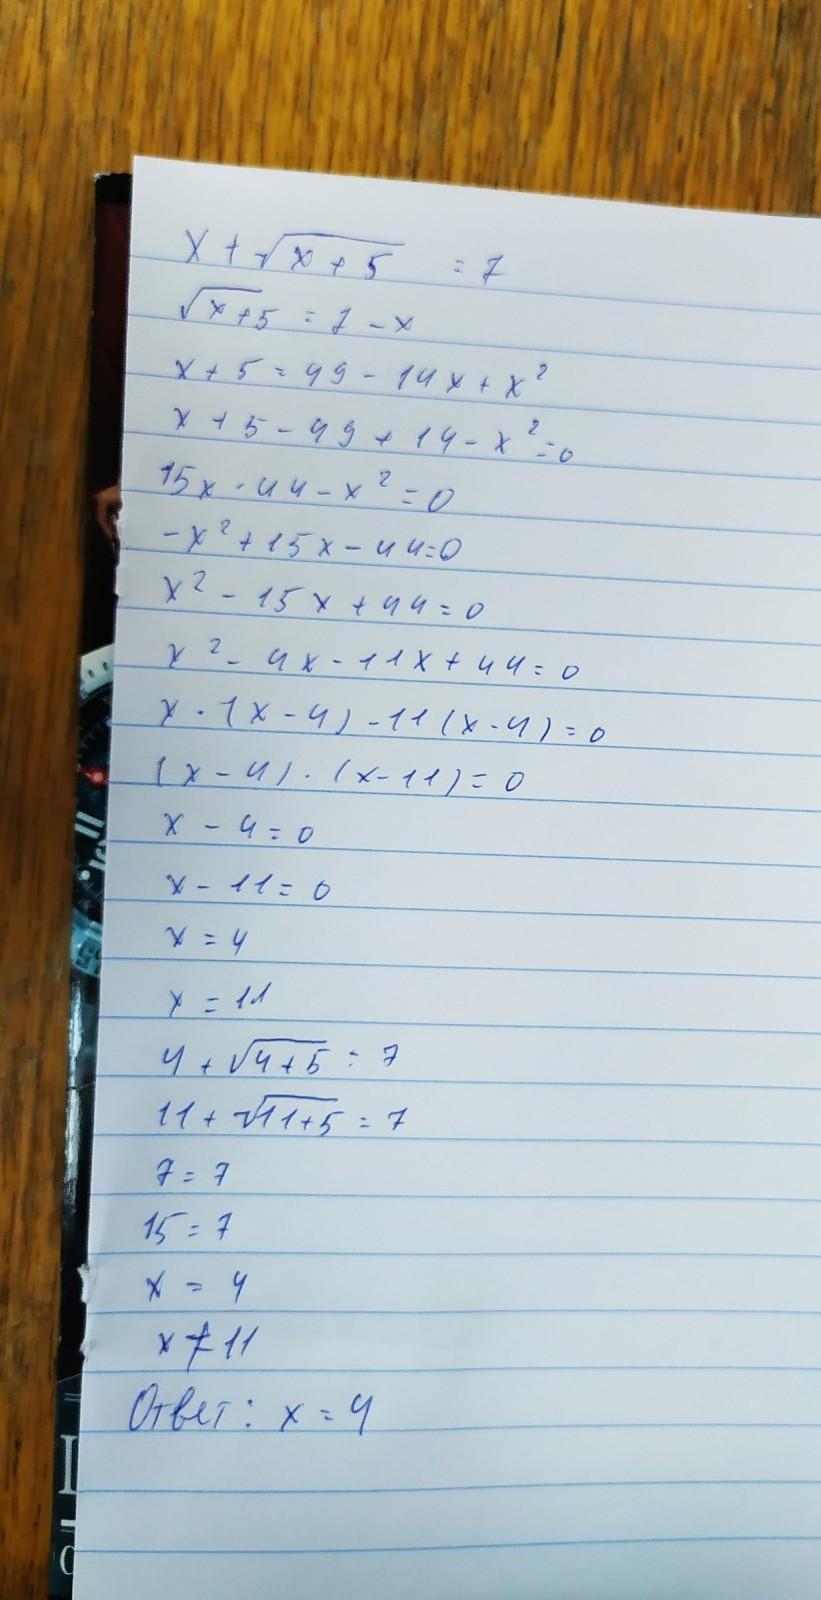 x + √(x + 5) = 7
√(x+5) = 7 - x
x + 5 = 49 - 14x + x²
x + 5 - 49 + 14 - x² = 0
15x - 44 - x² = 0
-x² + 15x - 44 = 0
x² - 15x + 44 = 0
x² - 4x - 11x + 44 = 0
x · (x - 4) - 11(x - 4) = 0
(x - 4) · (x - 11) = 0
x - 4 = 0
x - 11 = 0
x = 4
x = 11
4 + √(4+5) = 7
11 + √(11+5) = 7
7 = 7
15 = 7
x = 4
x ≠ 11
Ответ: x = 4